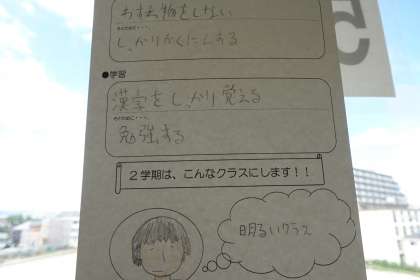 わすれ物をしない
そのために・・・
しっかりかくにんする
●学習
漢字をしっかり覚える
そのために・・・
勉強する
2学期は、こんなクラスにします！！
明るいクラス